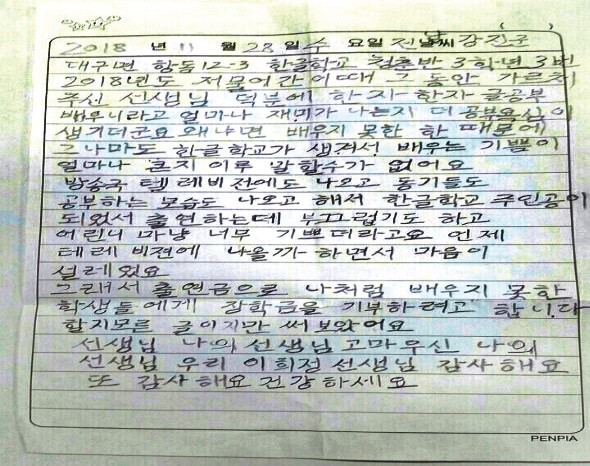 2018 년 11 월 28 일 수 요일 전남 강진군
대구면 항동 12-3 한글학교 청춘반 3학년 3번
2018년도 저물어간 이때 그 동안 가르처
주신 선생님 덕분에 한자 한자 글공부
배우니라고 얼마나 재미가 나는지 더 공부욕심이
생기더군요 왜냐면 배우지 못한 한 때문에
그나마도 한글학교가 생겨서 배우는 기쁨이
얼마나 큰지 이루 말할수가 없어요
방송국 텔레비전에도 나오고 동기들도
공부하는 모습도 나오고 해서 한글학교 주인공이
되었서 출연하는데 부끄럽기도 하고
어린니 마냥 너무 기쁘더라고요 언제
테레비젼에 나올까 하면서 가슴이
설레었요
그래서 출연금으로 나처럼 배우지 못한
학생들에게 장학금을 기부하려고 합니다
합지모른 글이지만 써 보았어요
선생님 나의 선생님 고마우신 나의
선생님 우리 이희정 선생님 감사해요
또 감사해요 건강하세요
PENPIA